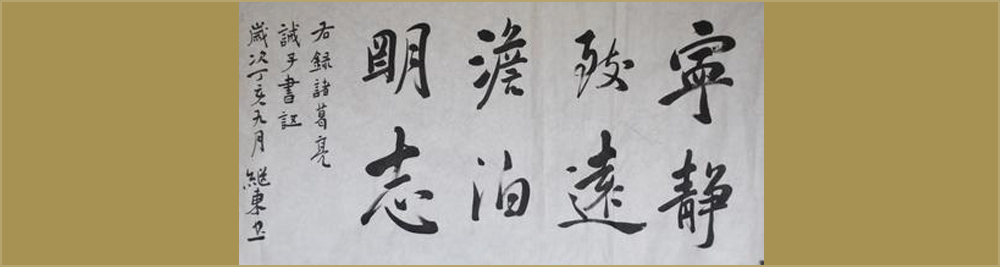 寧靜
致遠
澹泊
明志
右録諸葛亮
誡子書
歲次丁亥九月 継東书